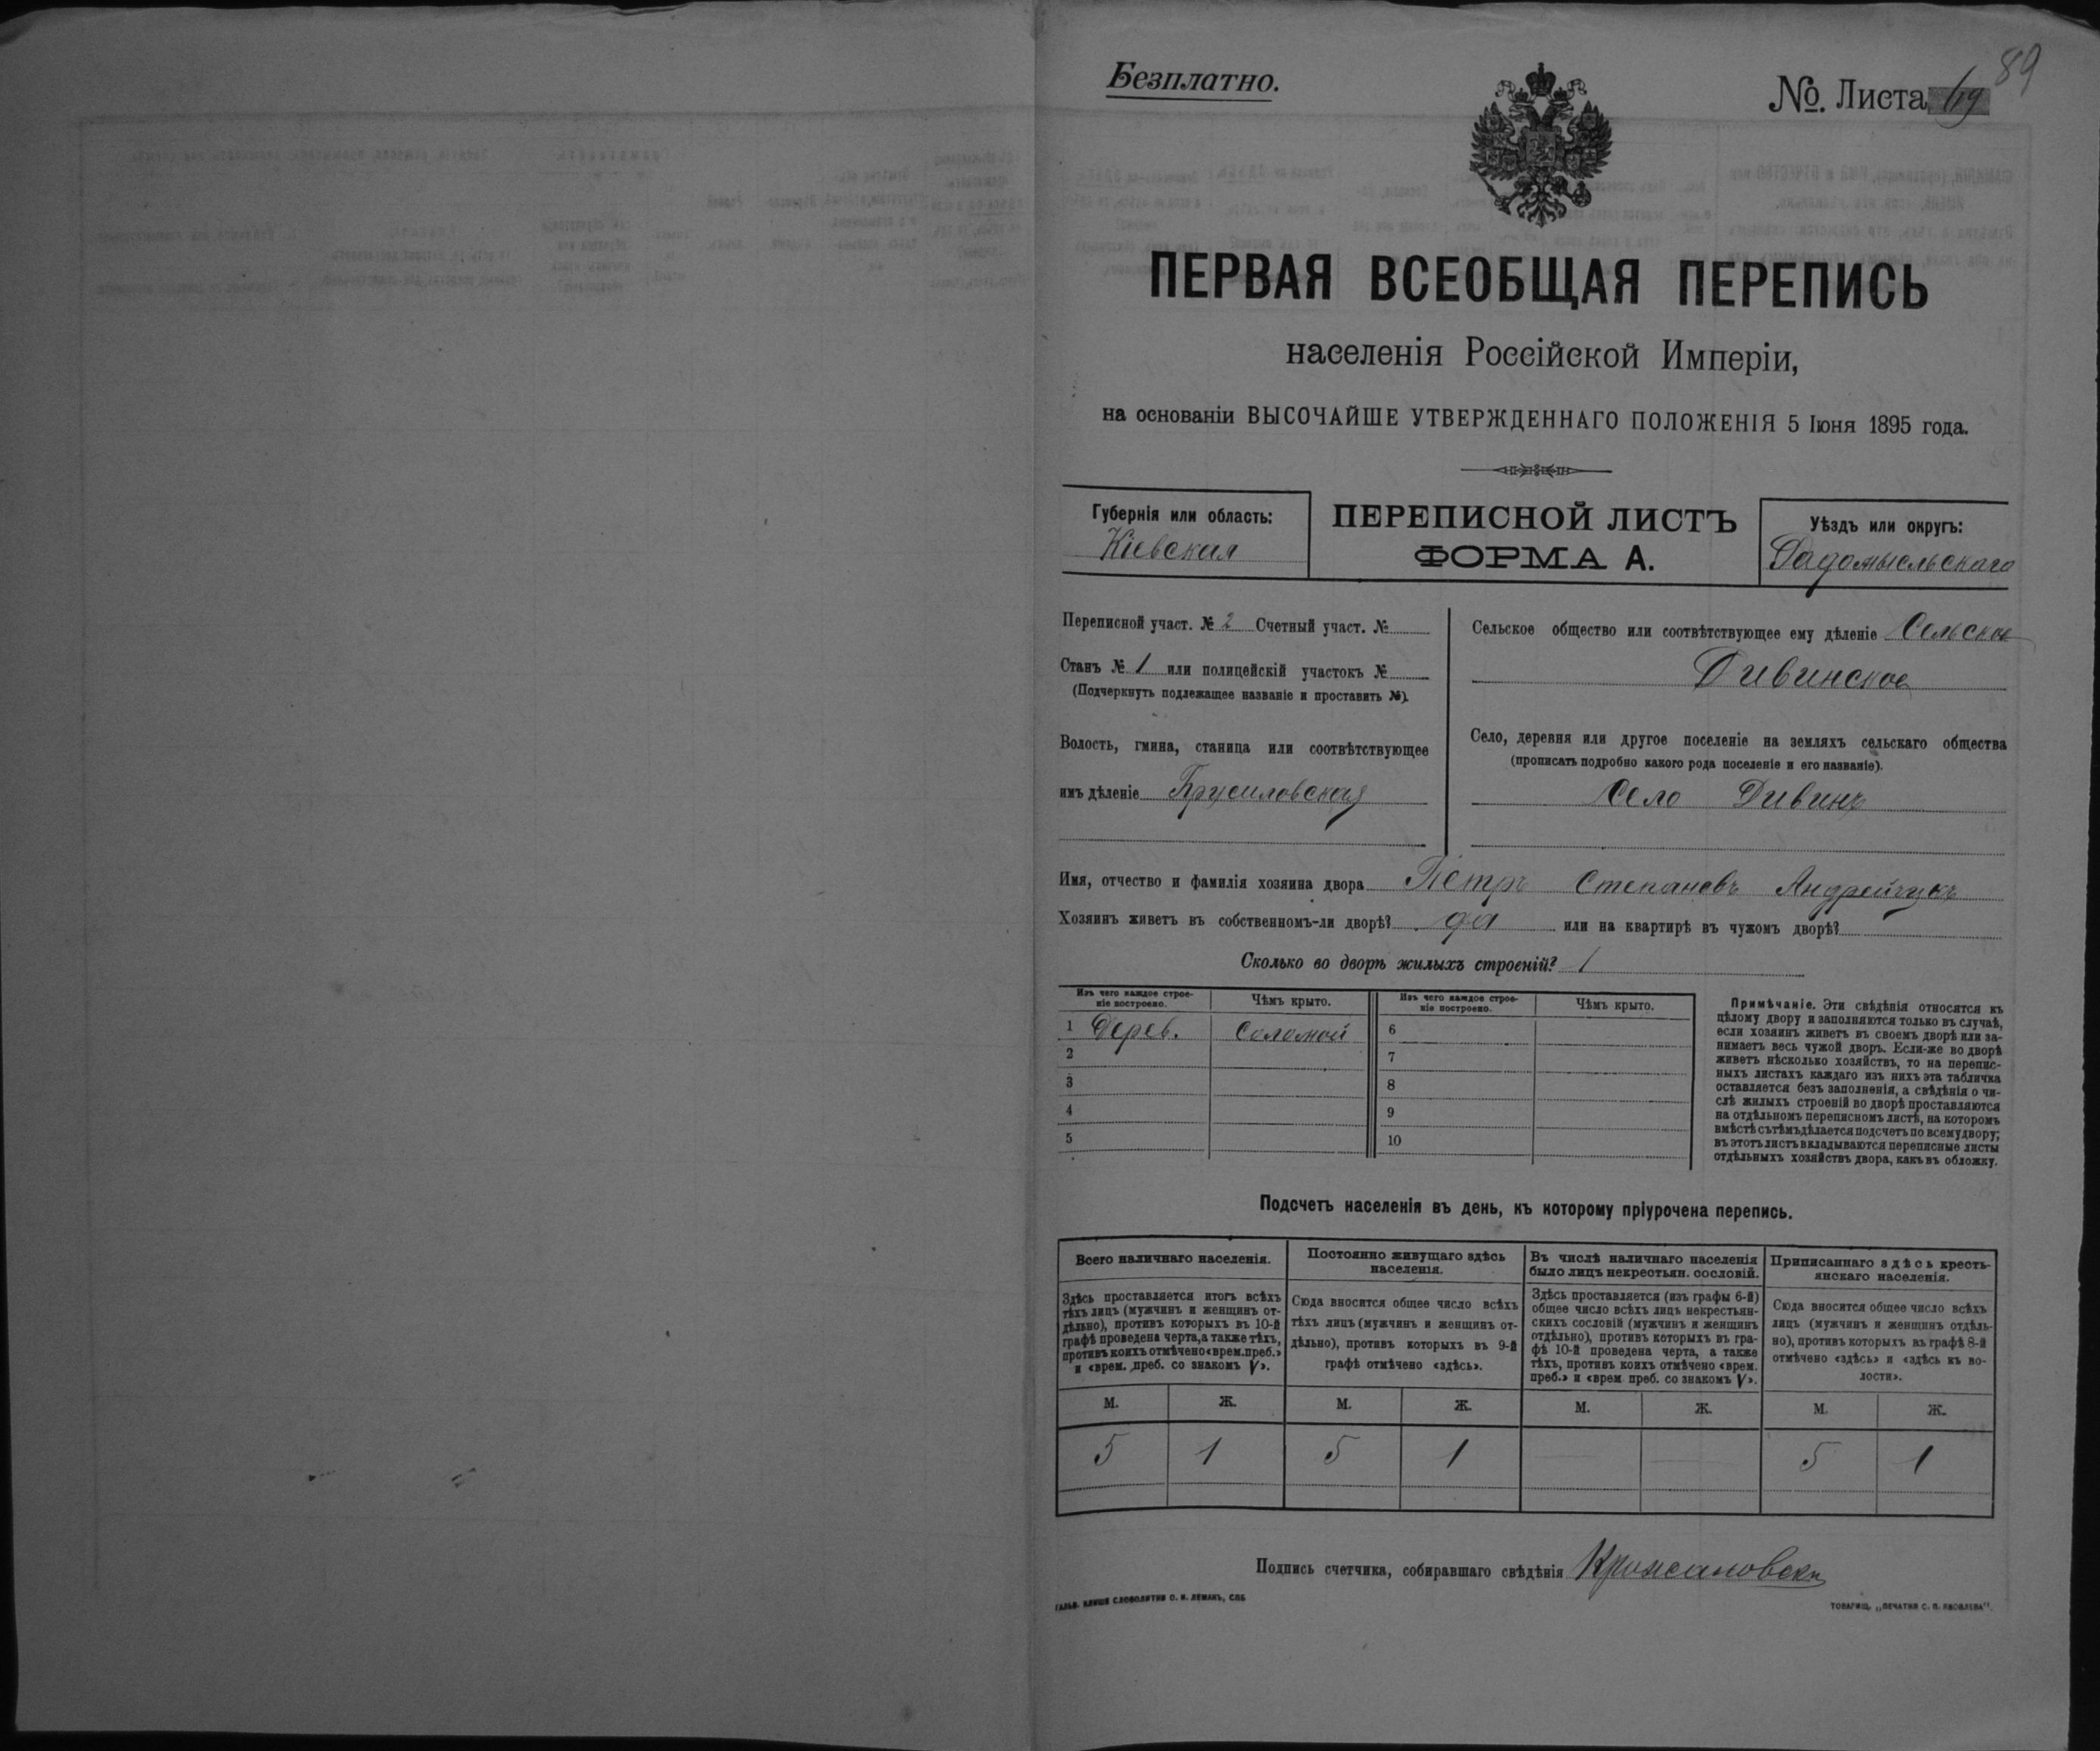 Безплатно.
№. Листа 69
89
ПЕРВАЯ ВСЕОБЩАЯ ПЕРЕПИСЬ
населенія Россійской Имперіи,
на основаніи ВЫСОЧАЙШЕ УТВЕРЖДЕННАГО ПОЛОЖЕНІЯ 5 Іюня 1895 года.
Губернія или область:
Кіевская
ПЕРЕПИСНОЙ ЛИСТЪ
ФОРМА А.
Уѣздъ или округъ:
Радомысльскаго
Переписной участ. № 2 Счетный участ. №
Станъ № 1 или полицейскій участокъ №
(Подчеркнуть подлежащее названіе и проставить №).
Волость, гмина, станица или соотвѣтствующее
имъ дѣленіе Брусиловская
Сельское общество или соотвѣтствующее ему дѣленіе Сельское
Дивинское
Село, деревня или другое поселеніе на земляхъ сельскаго общества
(прописать подробно какого рода поселеніе и его названіе).
Село Дивинъ
Имя, отчество и фамилія хозяина двора Петръ Степановъ Андрейчукъ
Хозяинъ живетъ въ собственномъ-ли дворѣ? да или на квартирѣ въ чужомъ дворѣ?
Сколько во дворѣ жилыхъ строеній? 1
Изъ чего каждое строе-
ніе построено.
Чѣмъ крыто.
Изъ чего каждое строе-
ніе построено.
Чѣмъ крыто.
1 Дерев. Соломой 6
2 7
3 8
4 9
5 10
Примѣчаніе. Эти свѣдѣнія относятся къ
цѣлому двору и заполняются только въ случаѣ,
если хозяинъ живетъ въ своемъ дворѣ или за-
нимаетъ весь чужой дворъ. Если-же во дворѣ
живетъ нѣсколько хозяйствъ, то на перепис-
ныхъ листахъ каждаго изъ нихъ эта табличка
оставляется безъ заполненія, а свѣдѣнія о чи-
слѣ жилыхъ строеній во дворѣ проставляются
на отдѣльномъ переписномъ листѣ, на которомъ
вмѣстѣ съ тѣмъ дѣлается подсчетъ по всему двору;
въ этотъ листъ вкладываются переписные листы
отдѣльныхъ хозяйствъ двора, какъ въ обложку.
Подсчетъ населенія въ день, къ которому пріурочена перепись.
Всего наличнаго населенія.
Здѣсь проставляется итогъ всѣхъ
тѣхъ лицъ (мужчинъ и женщинъ от-
дѣльно), противъ которыхъ въ 10-й
графѣ проведена черта, а также тѣхъ,
противъ коихъ отмѣчено «врем. преб.»
и «врем. преб. со знакомъ V».
Постоянно живущаго здѣсь
населенія.
Сюда вносится общее число всѣхъ
тѣхъ лицъ (мужчинъ и женщинъ от-
дѣльно), противъ которыхъ въ 9-й
графѣ отмѣчено «здѣсь».
Въ числѣ наличнаго населенія
было лицъ некрестьян. сословій.
Здѣсь проставляется (изъ графы 6-й)
общее число всѣхъ лицъ некрестьян-
скихъ сословій (мужчинъ и женщинъ
отдѣльно), противъ которыхъ въ гра-
фѣ 10-й проведена черта, а также
тѣхъ, противъ коихъ отмѣчено «врем.
преб.» и «врем преб. со знакомъ V».
Приписаннаго здѣсь кресть-
янскаго населенія.
Сюда вносится общее число всѣхъ
лицъ (мужчинъ и женщинъ отдѣль-
но), противъ которыхъ въ графѣ 8-й
отмѣчено «здѣсь» и «здѣсь къ во-
лости».
М. Ж. М. Ж. М. Ж. М. Ж.
5 1 5 1 — — 5 1
Подпись счетчика, собиравшаго свѣдѣнія
ГАЛЬВ. КЛИШЕ СЛОВОЛИТНИ О. И. ЛЕМАНЪ, СПБ.
ТОВАРИЩ. „ПЕЧАТНЯ С. П. ЯКОВЛЕВА".